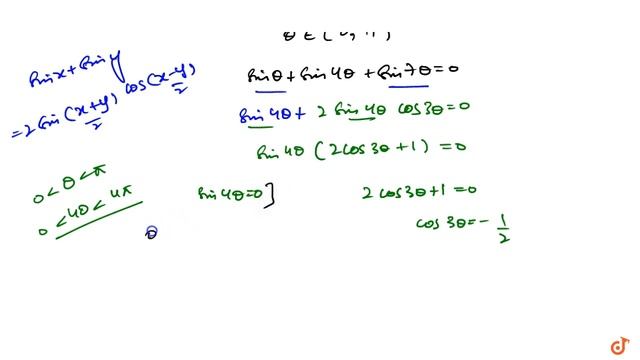 sinx + siny
= 2 sin (x+y)/2 cos (x-y)/2
sinθ + sin4θ + sin7θ = 0
sin4θ + 2 sin4θ cos3θ = 0
sin4θ (2cos3θ + 1) = 0
0 < θ < π
0 < 4θ < 4π
sin4θ = 0]
2 cos3θ + 1 = 0
cos3θ = - 1/2
θ